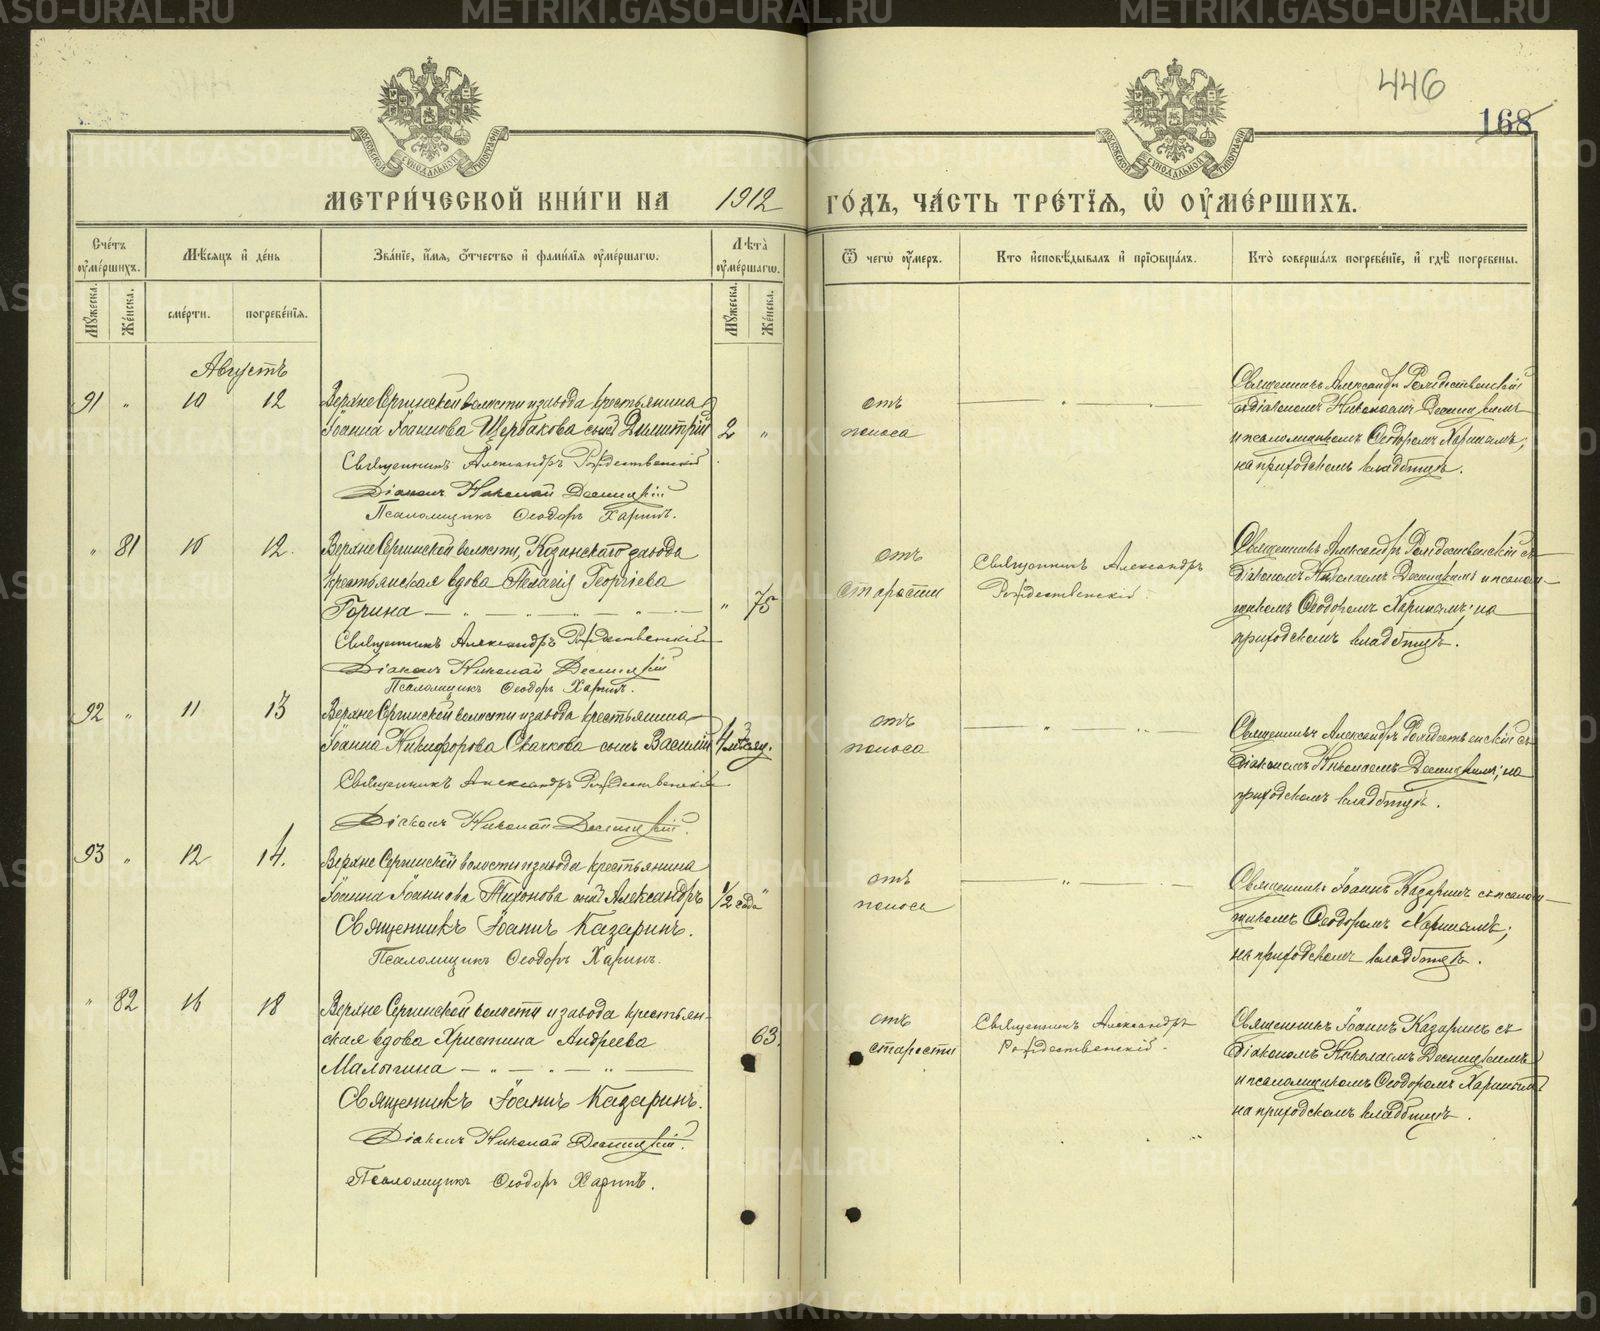 446
168
МОСКОВСКОЙ СѴНОДАЛЬНОЙ ТИПОГРАФІИ
МОСКОВСКОЙ СѴНОДАЛЬНОЙ ТИПОГРАФІИ
МЕТРИ́ЧЕСКОЙ КНИ́ГИ НА 1912 ГО́ДЪ, ЧА́СТЬ ТРЕ́ТІѦ, Ѿ ОУМЕ́РШИХЪ.
Сче́тъ оумершихъ.
Мѣсяцъ и день
Зва́ніе, и́мя, о́тчество и фами́лія оуме́ршагѡ.
Лѣта̀ оуме́ршагѡ.
Ѿ чегѡ̀ оу́меръ.
Кто̀ и́сповѣдывалъ и пріѡбща́лъ.
Кто̀ соверша́лъ погребе́ніе, и гдѣ̀ погребены.
Мꙋжеска.
Же́нска.
сме́рти.
погребе́нія.
Мꙋжеска.
Же́нска.
Августъ
91 " 10 12 Верхне Сергинской волости и завода крестьянина
Іоанна Іоаннова Щербакова сынъ Димитрій 2 "
Священникъ Александръ Рождественскій
Діаконъ Николай Десницкій
Псаломщикъ Ѳеодоръ Харинъ.
отъ
поноса
Священникъ Александръ Рождественскій
съ діакономъ Николаемъ Десницкимъ
и псаломщикомъ Ѳеодоромъ Харинымъ;
на приходскомъ кладбищѣ.
" 81 10 12. Верхне Сергинской волости, Козинскаго завода
крестьянская вдова Пелагія Георгіева
Горина " 75
Священникъ Александръ Рождественскій
Діаконъ Николай Десницкій
Псаломщикъ Ѳеодоръ Харинъ.
отъ
старости
Священникъ Александръ
Рождественскій
Священникъ Александръ Рождественскій съ
діакономъ Николаемъ Десницкимъ и псалом-
щикомъ Ѳеодоромъ Харинымъ; на
приходскомъ кладбищѣ.
92 " 11 13 Верхне Сергинской волости и завода крестьянина
Іоанна Никифорова Скачкова сынъ Василій 4 мѣсяц.
Священникъ Александръ Рождественскій
Діаконъ Николай Десницкій.
отъ
поноса
Священникъ Александръ Рождественскій съ
діакономъ Николаемъ Десницкимъ; на
приходскомъ кладбищѣ.
93 " 12 14. Верхне Сергинской волости и завода крестьянина
Іоанна Іоаннова Тихонова сынъ Александръ 1/2 года "
Священникъ Іоаннъ Казаринъ.
Псаломщикъ Ѳеодоръ Харинъ.
отъ
поноса
Священникъ Іоаннъ Казаринъ съ псалом-
щикомъ Ѳеодоромъ Харинымъ;
на приходскомъ кладбищѣ.
" 82 16 18 Верхне Сергинской волости и завода крестьян-
ская вдова Христина Андреева 63.
Малыгина
Священникъ Іоаннъ Казаринъ.
Діаконъ Николай Десницкій.
Псаломщикъ Ѳеодоръ Харинъ.
отъ
старости
Священникъ Александръ
Рождественскій.
Священникъ Іоаннъ Казаринъ съ
діакономъ Николаемъ Десницкимъ
и псаломщикомъ Ѳеодоромъ Харинымъ
на приходскомъ кладбищѣ.
METRIKI.GASO-URAL.RU